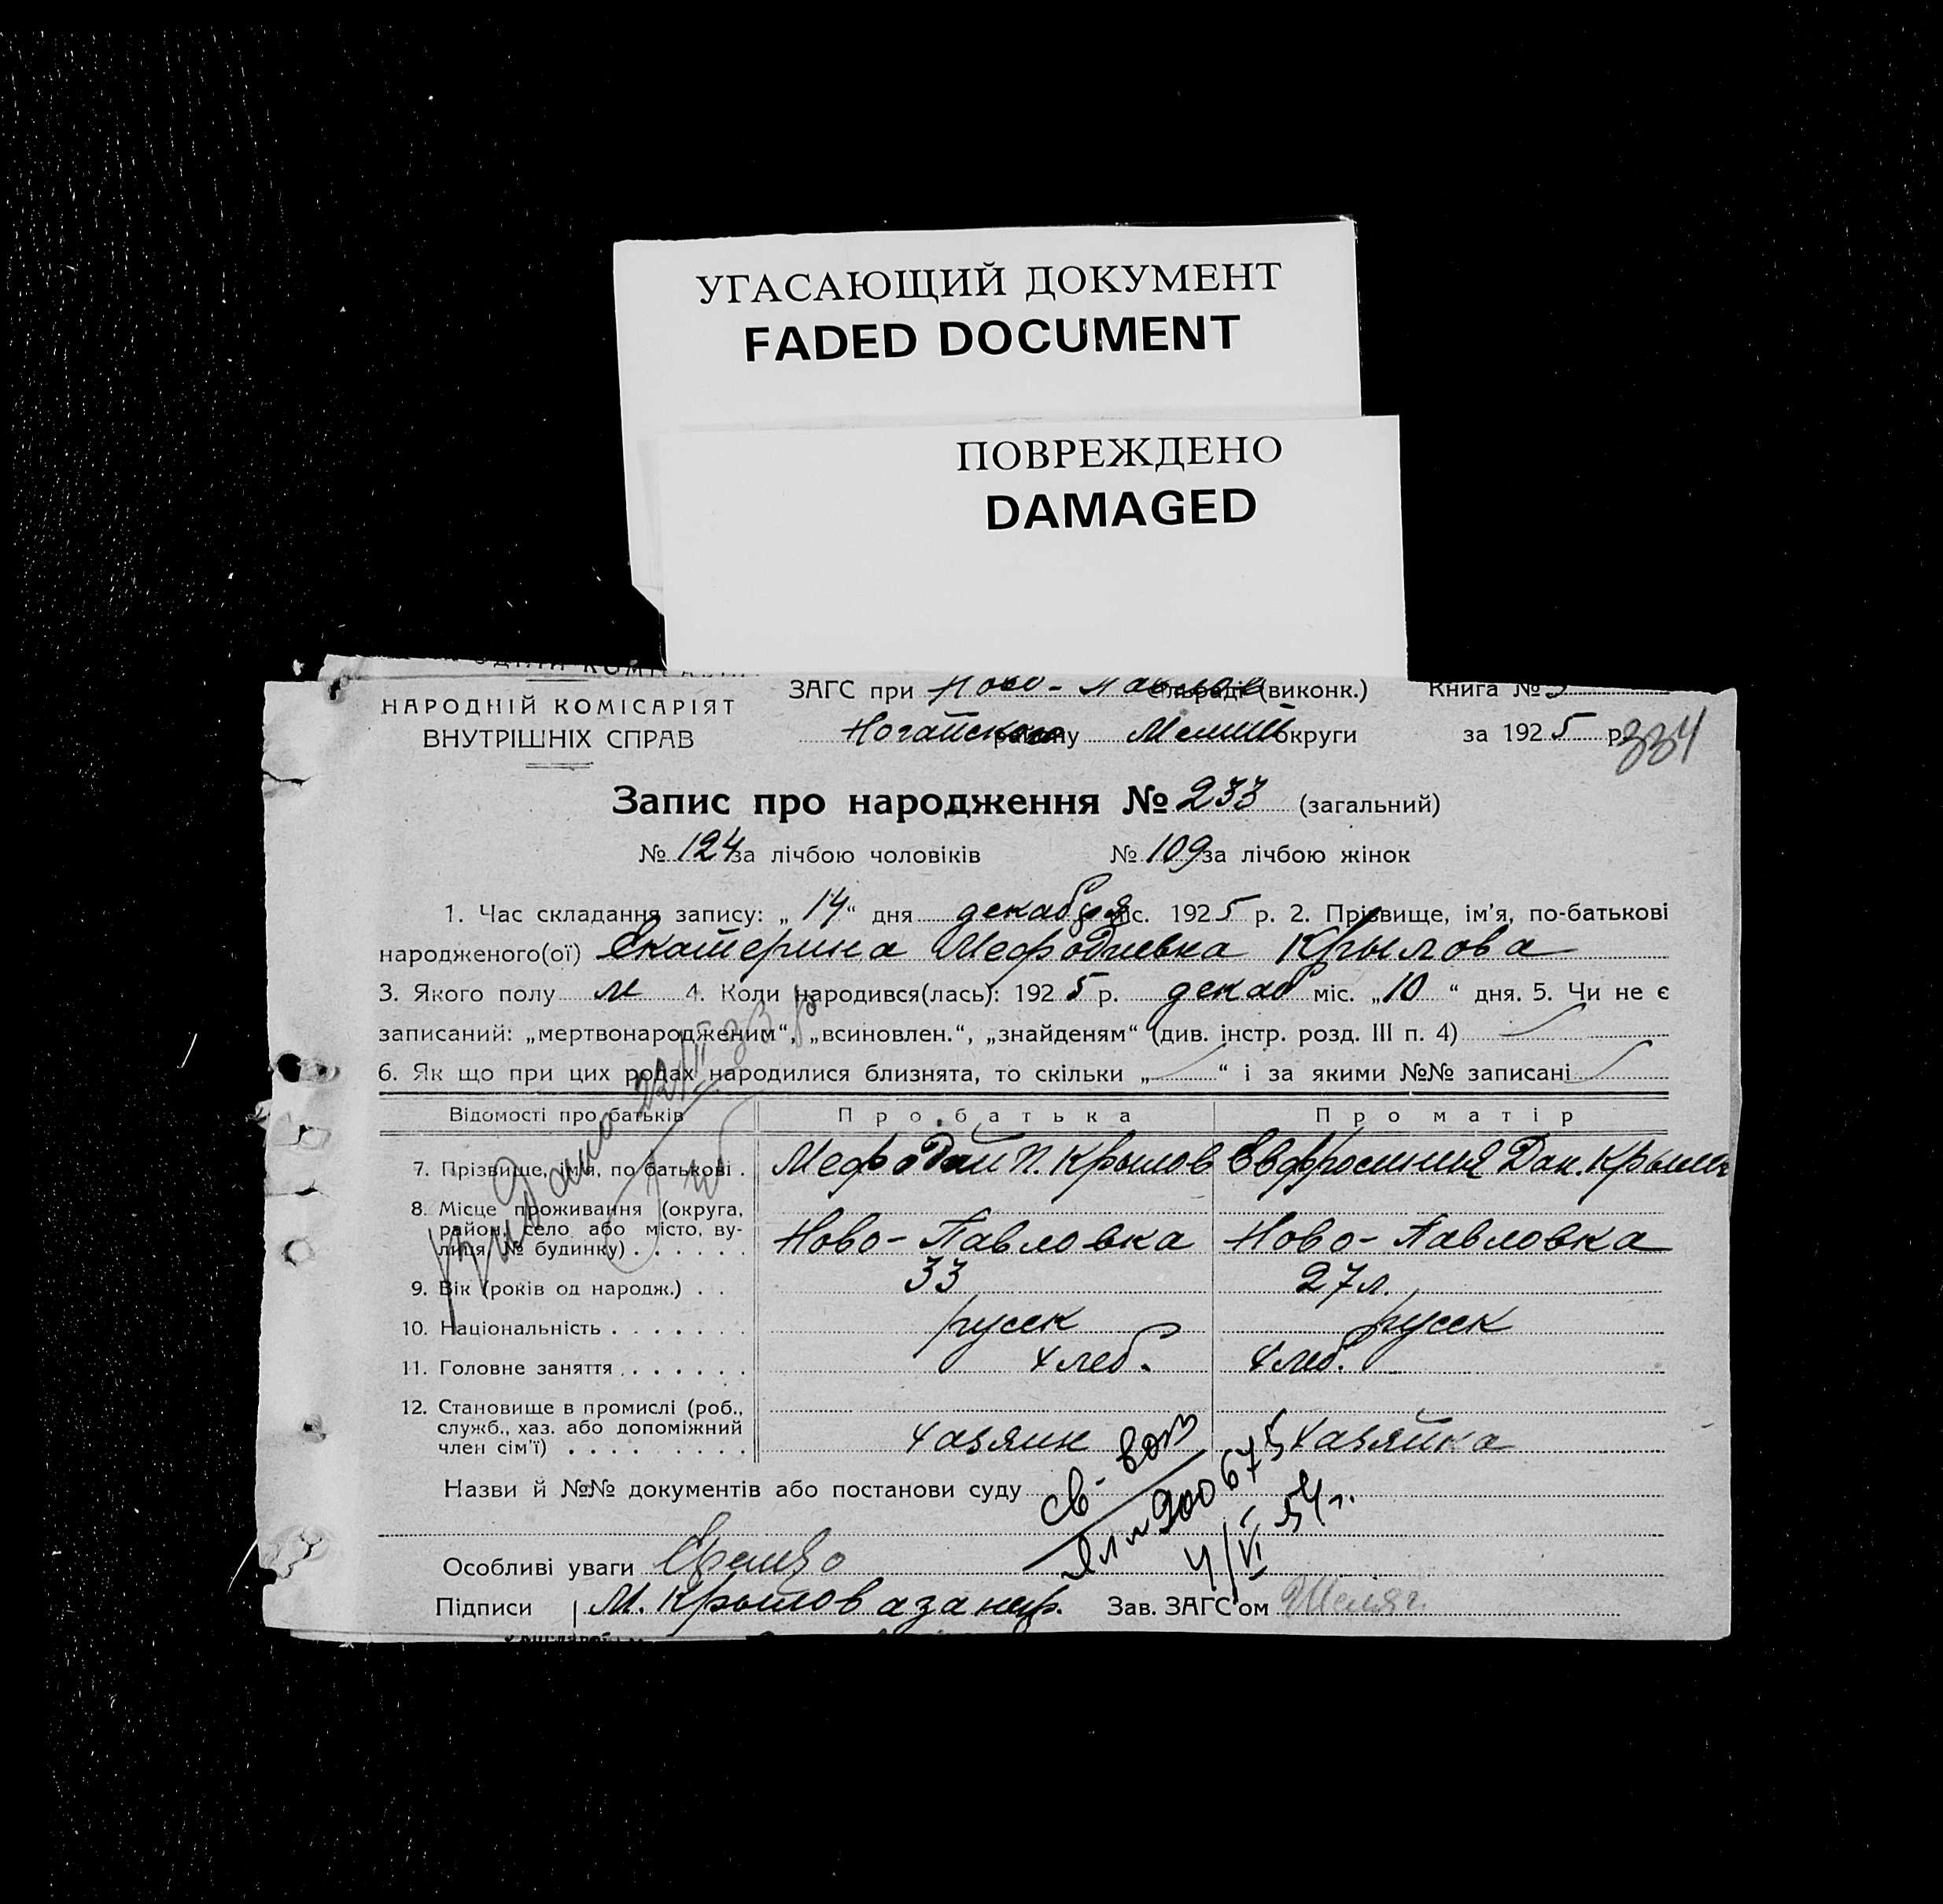 УГАСАЮЩИЙ ДОКУМЕНТ
FADED DOCUMENT
ПОВРЕЖДЕНО
DAMAGED
НАРОДНІЙ КОМІСАРІЯТ
ВНУТРІШНІХ СПРАВ
ЗАГС при Ново- (виконк.) Книга №
Ногайского району Мелит округи за 1925 р.
334
Запис про народження № 233 (загальний)
№ 124 за лічбою чоловіків № 109 за лічбою жінок
1. Час складання запису: „ 14 “ дня декабря міс. 1925 р. 2. Прізвище, ім'я, по-батькові
народженого(ої) Екатерина Мефодиевна Крылова
3. Якого полу 4. Коли народився(лась): 1925 р. декаб міс. „ 10 “ дня. 5. Чи не є
записаний: „мертвонародженим“, „всиновлен.“, „знайденям“ (див. інстр. розд. III п. 4)
6. Як що при цих родах народилися близнята, то скільки „ “ і за якими №№ записані
Відомості про батьків Про батька Про матір
7. Прізвище, ім'я, по батькові . Мефодий П. Крылов Евфросиния Дан. Крылов
8. Місце проживання (округа,
район, село або місто, ву-
лиця, № будинку) . . . . . . Ново-Павловка Ново-Павловка
9. Вік (років од народж.) . . 33 27 л.
10. Національність . . . . . . . русск русск
11. Головне заняття . . . . . . хлеб. хлеб.
12. Становище в промислі (роб.,
служб., хаз. або допоміжний
член сім'ї) . . . . . . . . . хазяин хазяйка
Назви й №№ документів або постанови суду
св-во
900675
4/VI 54 г.
Особливі уваги
Підписи М. Крылов а за негр. Зав. ЗАГС'ом